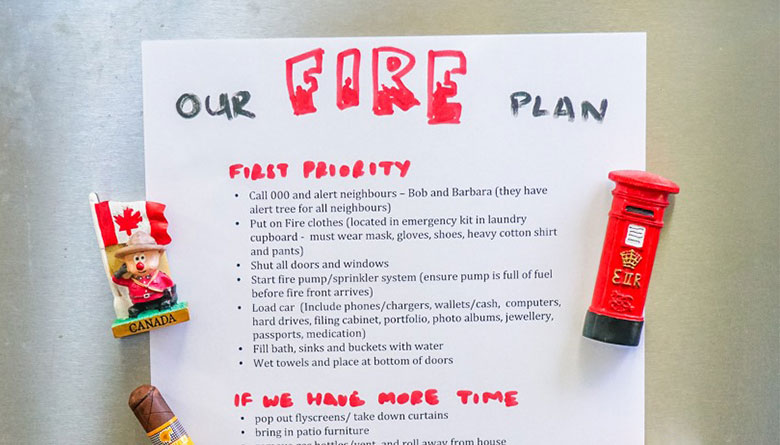 OUR FIRE PLAN
FIRST PRIORITY
• Call 000 and alert neighbours – Bob and Barbara (they have
alert tree for all neighbours)
• Put on Fire clothes (located in emergency kit in laundry
cupboard - must wear mask, gloves, shoes, heavy cotton shirt
and pants)
• Shut all doors and windows
• Start fire pump/sprinkler system (ensure pump is full of fuel
before fire front arrives)
• Load car (Include phones/chargers, wallets/cash, computers,
hard drives, filing cabinet, portfolio, photo albums, jewellery,
passports, medication)
• Fill bath, sinks and buckets with water
• Wet towels and place at bottom of doors
IF WE HAVE MORE TIME
• pop out flyscreens/ take down curtains
• bring in patio furniture
and roll away from house
CANADA
EIIR